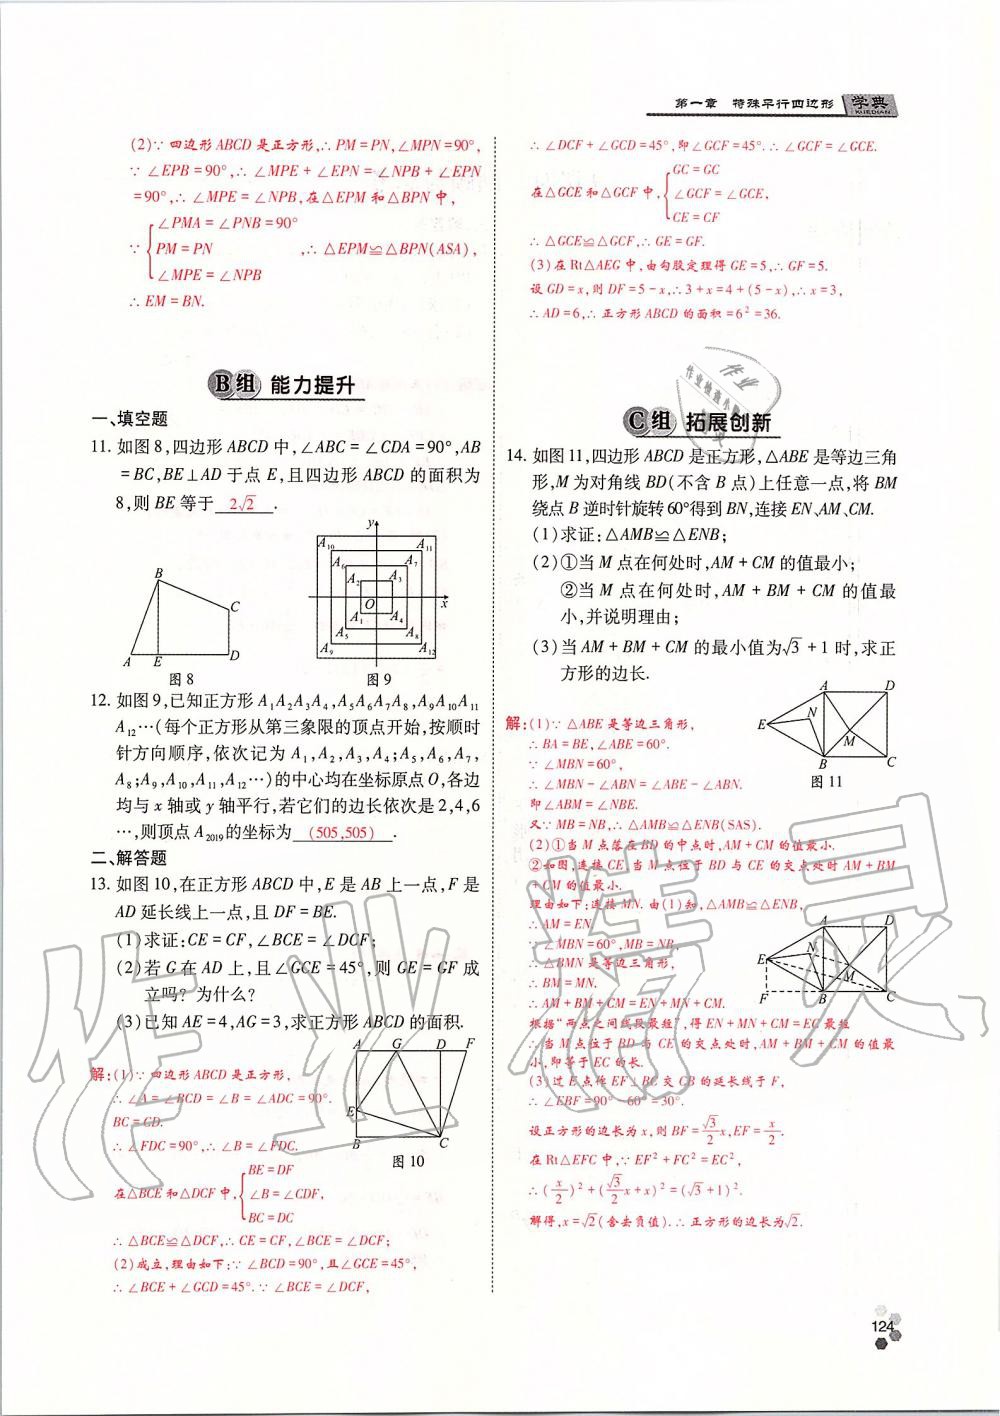 第一章 特殊平行四边形 学典
XUEDIAN
(2)∵四边形ABCD是正方形,∴PM=PN,∠MPN=90°,
∵∠EPB=90°,∴∠MPE+∠EPN=∠NPB+∠EPN
=90°,∴∠MPE=∠NPB,在△EPM和△BPN中,
∠PMA=∠PNB=90°
∵ PM=PN ,∴△EPM≌△BPN(ASA),
∠MPE=∠NPB
∴EM=BN.
B组 能力提升
一、填空题
11. 如图8,四边形ABCD中,∠ABC=∠CDA=90°,AB
=BC,BE⊥AD于点E,且四边形ABCD的面积为
8,则BE等于 2√2 .
B
C
A E D
图8
y
A10 A11
A6 A7
A2 A3
O x
A1 A4
A5 A8
A9 A12
图9
12. 如图9,已知正方形A1A2A3A4,A5A6A7A8,A9A10A11
A12…(每个正方形从第三象限的顶点开始,按顺时
针方向顺序,依次记为A1,A2,A3,A4;A5,A6,A7,
A8;A9,A10,A11,A12…)的中心均在坐标原点O,各边
均与x轴或y轴平行,若它们的边长依次是2,4,6
…,则顶点A2019的坐标为 (505,505) .
二、解答题
13. 如图10,在正方形ABCD中,E是AB上一点,F是
AD延长线上一点,且DF=BE.
(1)求证:CE=CF,∠BCE=∠DCF;
(2)若G在AD上,且∠GCE=45°,则GE=GF成
立吗?为什么?
(3)已知AE=4,AG=3,求正方形ABCD的面积.
A G D F
E
B C
图10
解:(1)∵四边形ABCD是正方形,
∴∠A=∠BCD=∠B=∠ADC=90°,
BC=CD.
∴∠FDC=90°,∴∠B=∠FDC.
BE=DF
在△BCE和△DCF中, ∠B=∠CDF,
BC=DC
∴△BCE≌△DCF,∴CE=CF,∠BCE=∠DCF;
(2)成立,理由如下:∵∠BCD=90°,且∠GCE=45°,
∴∠BCE+∠GCD=45°.∵∠BCE=∠DCF,
∴∠DCF+∠GCD=45°,即∠GCF=45°.∴∠GCF=∠GCE.
GC=GC
在△GCE和△GCF中, ∠GCF=∠GCE,
CE=CF
∴△GCE≌△GCF,∴GE=GF.
(3)在Rt△AEG中,由勾股定理得GE=5,∴GF=5.
设GD=x,则DF=5-x,∴3+x=4+(5-x),∴x=3,
∴AD=6,∴正方形ABCD的面积=6²=36.
C组 拓展创新
14. 如图11,四边形ABCD是正方形,△ABE是等边三角
形,M为对角线BD(不含B点)上任意一点,将BM
绕点B逆时针旋转60°得到BN,连接EN、AM、CM.
(1)求证:△AMB≌△ENB;
(2)①当M点在何处时,AM+CM的值最小;
②当M点在何处时,AM+BM+CM的值最
小,并说明理由;
(3)当AM+BM+CM的最小值为√3+1时,求正
方形的边长.
A D
E N
M
B C
图11
解:(1)∵△ABE是等边三角形,
∴BA=BE,∠ABE=60°.
∵∠MBN=60°,
∴∠MBN-∠ABN=∠ABE-∠ABN.
即∠ABM=∠NBE.
又∵MB=NB,∴△AMB≌△ENB(SAS).
(2)①当M点落在BD的中点时,AM+CM的值最小.
②如图,连接CE,当M点位于BD与CE的交点处时AM+BM
+CM的值最小.
理由如下:连接MN.由(1)知,△AMB≌△ENB,
∴AM=EN.
∵∠MBN=60°,MB=NB,
∴△BMN是等边三角形,
∴BM=MN.
∴AM+BM+CM=EN+MN+CM.
根据“两点之间线段最短”,得EN+MN+CM=EC最短
∴当M点位于BD与CE的交点处时,AM+BM+CM的值最
小,即等于EC的长.
A D
E N
M
F B C
(3)过E点作EF⊥BC交CB的延长线于F,
∴∠EBF=90°-60°=30°.
设正方形的边长为x,则BF=√3/2x,EF=x/2.
在Rt△EFC中,∵EF²+FC²=EC²,
∴(x/2)²+(√3/2x+x)²=(√3+1)².
解得,x=√2(舍去负值).∴正方形的边长为√2.
124
作业精灵